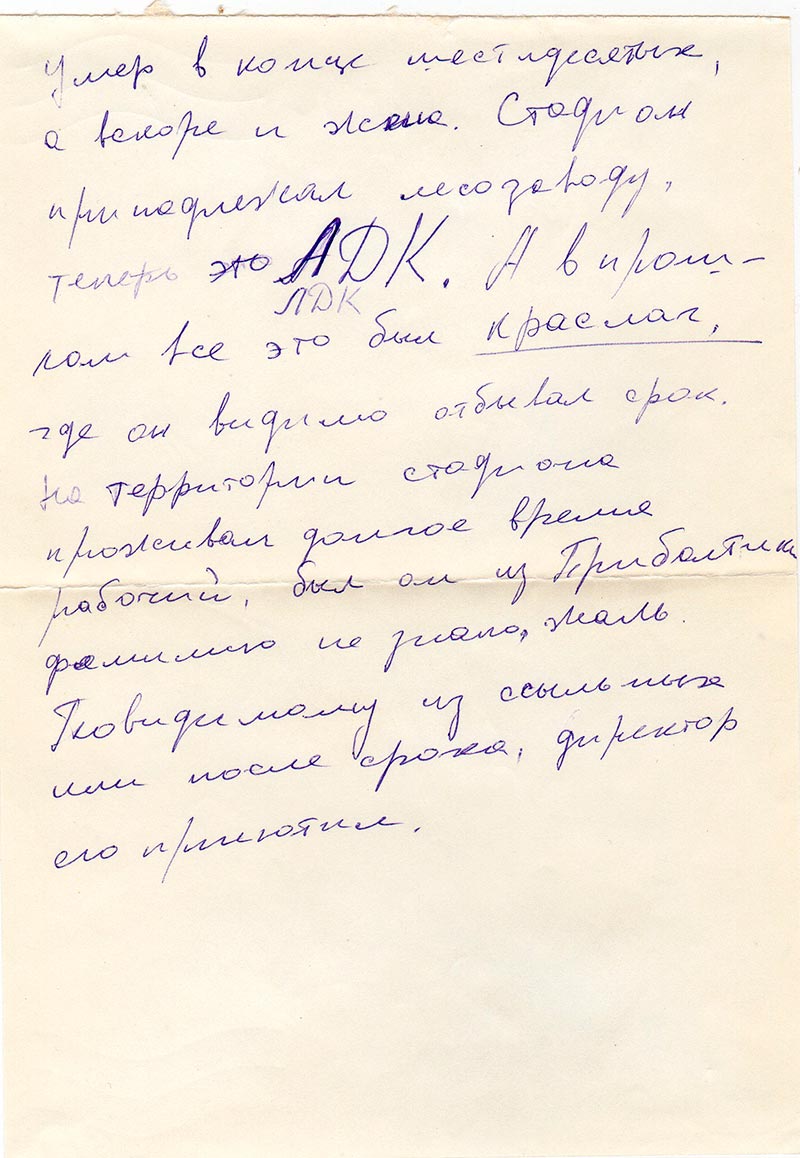 Умер в конце шестидесятых,
а вскоре и жена. Стадион
принадлежал лесозаводу,
теперь это ЛДК. А в прош-
ЛДК
лом все это был краслаг,
где он видимо отбывал срок.
на территории стадиона
проживал долгое время
рабочий, был он из Прибалтики
фамилию не знаю, жаль.
Повидимому из ссыльных
или после срока, директор
его приютил.